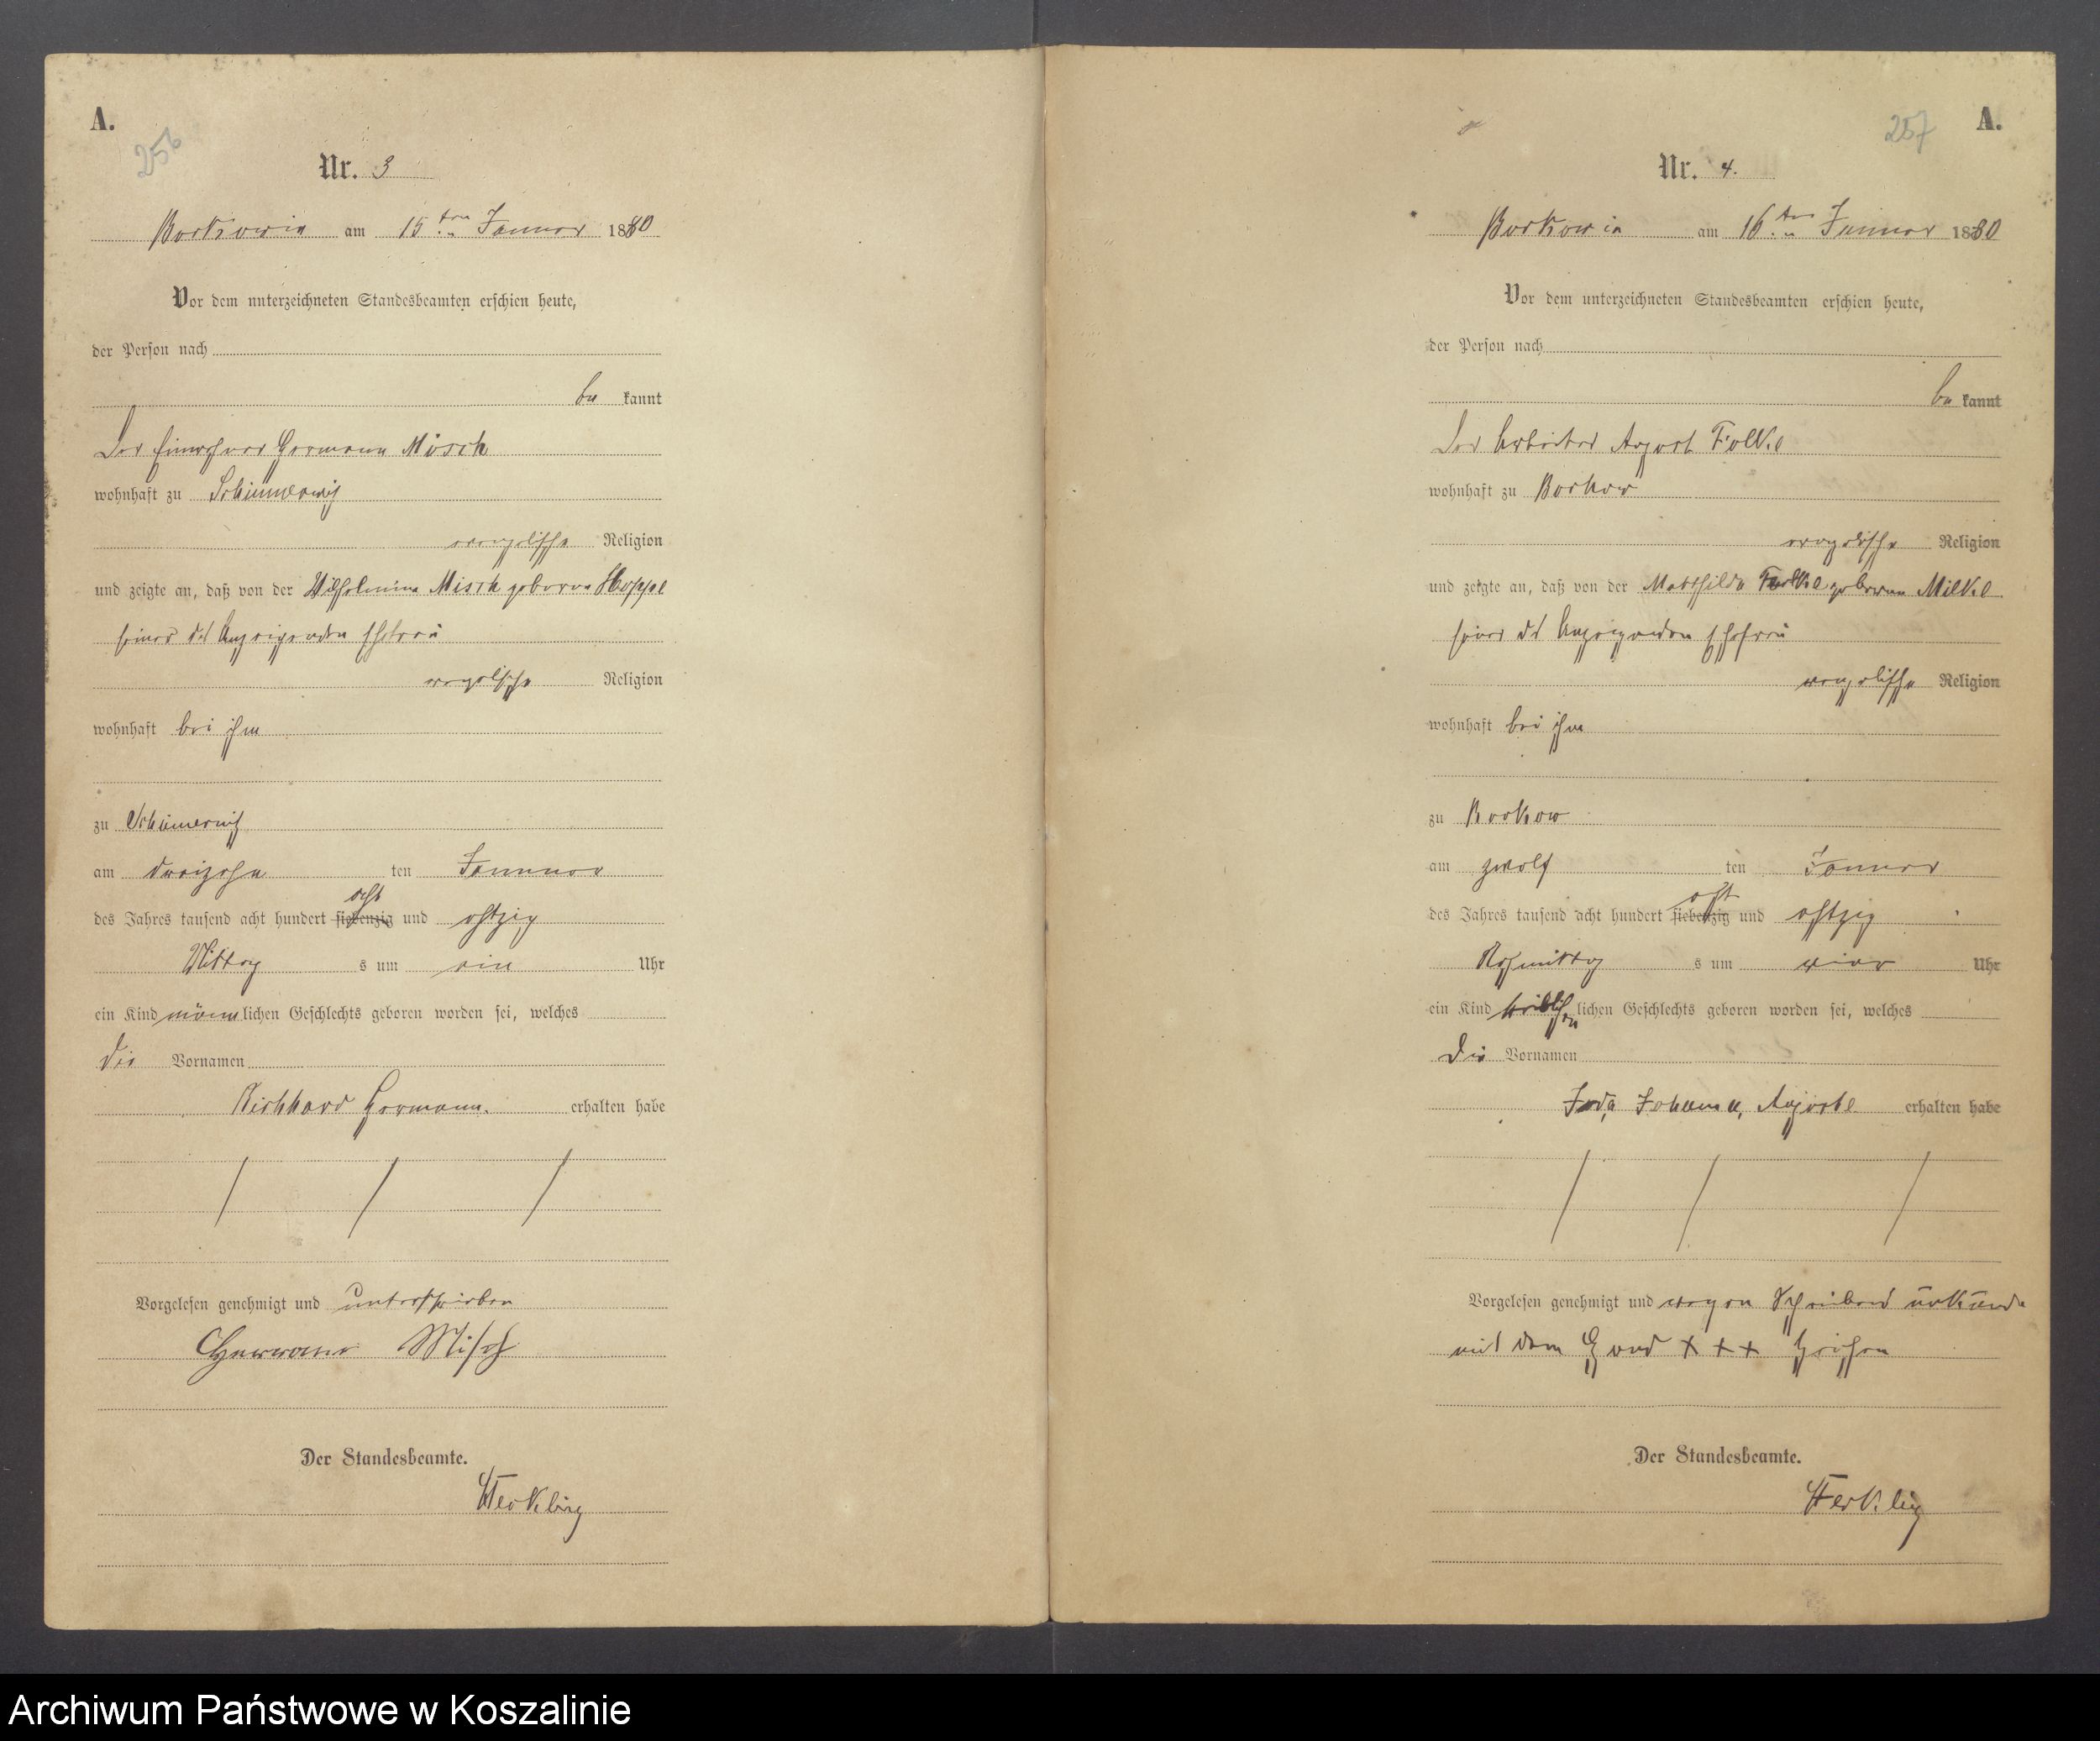 A.
256
Nr. 3
Borkowin am 15ten Januar 1880
Vor dem unterzeichneten Standesbeamten erschien heute,
der Person nach
be kannt
Der Einwohner Hermann Misch
wohnhaft zu
evangelische Religion
und zeigte an, daß von der Wilhelmine Misch geborene Hoppe
seiner des Anzeigenden Ehefrau
evangelische Religion
wohnhaft bei ihm
zu
am dreizehn ten Januar
des Jahres tausend acht hundert siebenzig acht und achtzig
Mittag s um ein Uhr
ein Kind männlichen Geschlechts geboren worden sei, welches
die Vornamen
Richhard Hermann. erhalten habe
Vorgelesen genehmigt und unterschrieben
Hermann Misch
Der Standesbeamte.
A.
257
Nr. 4.
Borkowin am 16ten Januar 1880
Vor dem unterzeichneten Standesbeamten erschien heute,
der Person nach
be kannt
Der Arbeiter August Folke
wohnhaft zu Borkow
evangelische Religion
und zeigte an, daß von der Matthilde Folke geborene Milke
seiner des Anzeigenden Ehefrau
evangelische Religion
wohnhaft bei ihm
zu Borkow
am zwölf ten Januar
des Jahres tausend acht hundert siebenzig acht und achtzig
Nachmittag s um vier Uhr
ein Kind weiblichen lichen Geschlechts geboren worden sei, welches
die Vornamen
Ida, Johanna, Auguste erhalten habe
Vorgelesen genehmigt und wegen Schreibens unkunde
mit dem Hand + + + Zeichen
Der Standesbeamte.
Archiwum Państwowe w Koszalinie